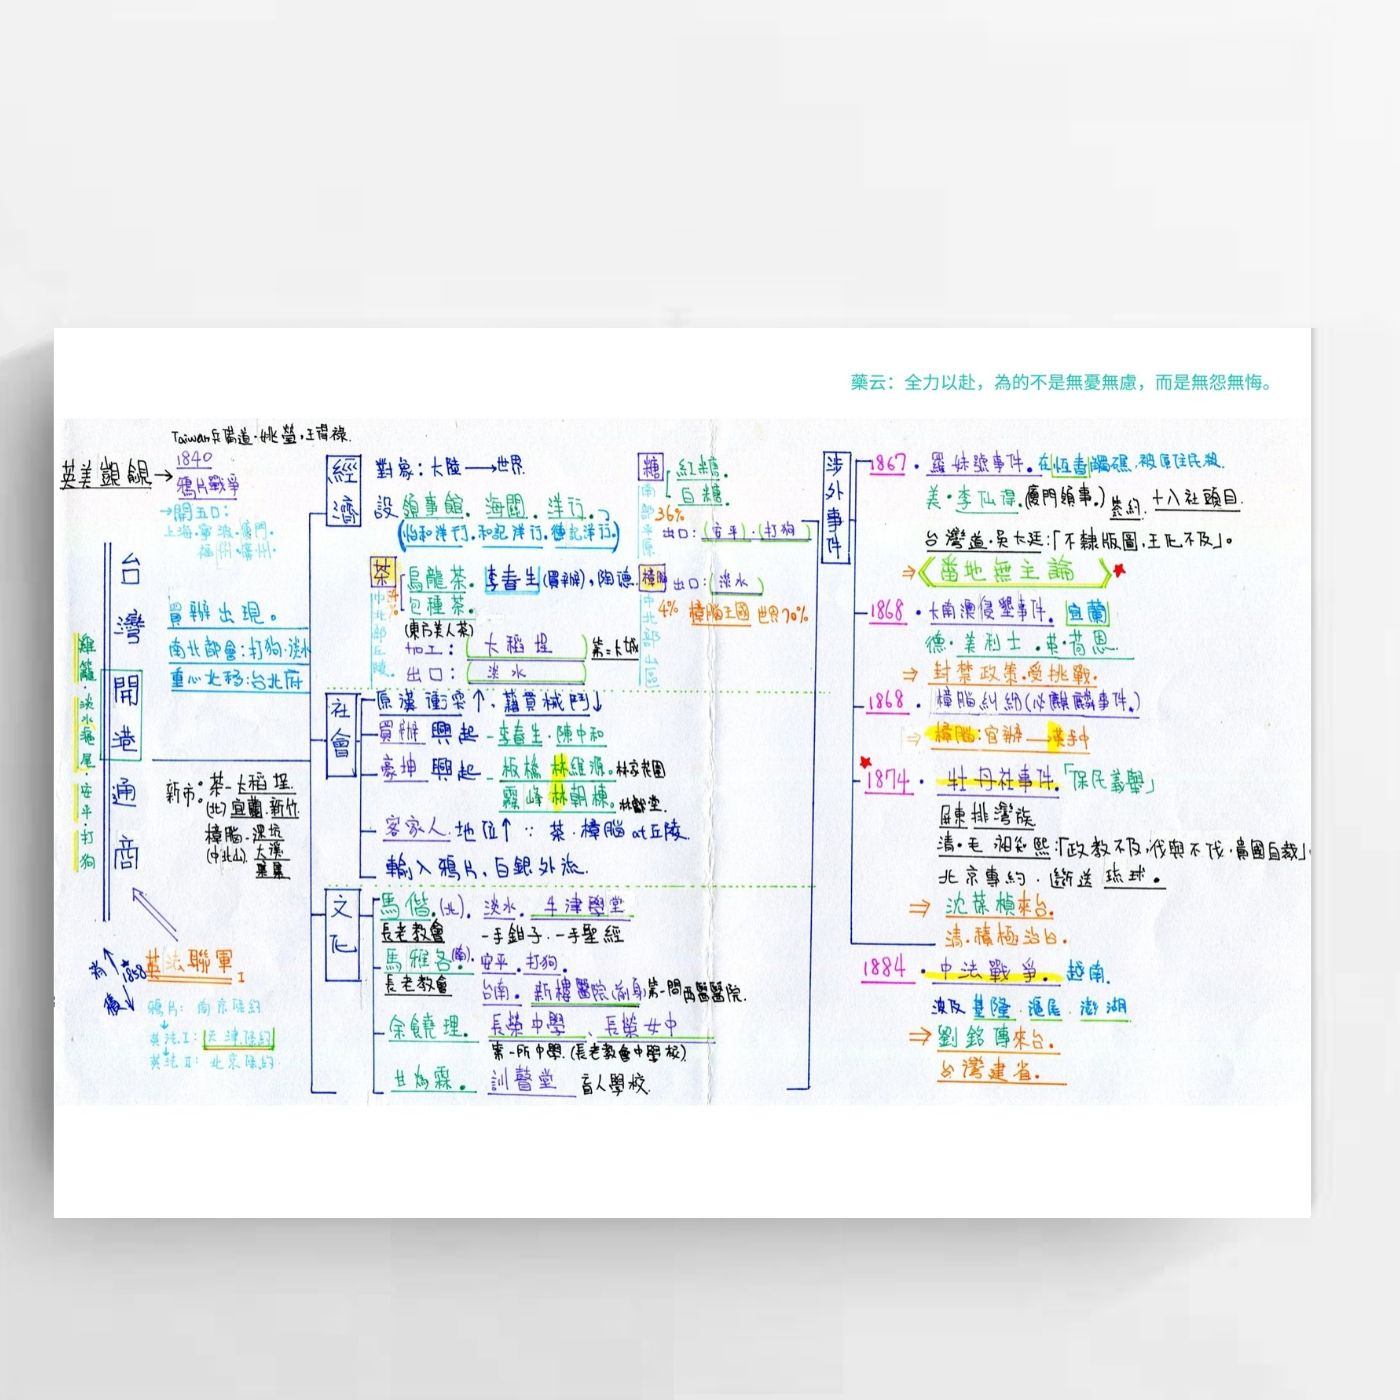 藥云：全力以赴，為的不是無憂無慮，而是無怨無悔。
Taiwan兵備道·姚瑩,王得祿.
英美覬覦→
1840
鴉片戰爭
→開五口:
上海·寧波·廈門·
福州·廣州·
台灣開港通商
雞籠·淡水滬尾·安平·打狗
買辦出現。
南北都會:打狗·淡水
重心北移:台北府
新市:
茶-大稻埕.
(北)宜蘭.新竹
樟腦-深坑
(中北山).大溪
英法聯軍 I
前
1858
後
鴉片: 南京條約
英法I: 天津條約
英法II: 北京條約
經濟
對象:大陸→世界
設領事館.海關.洋行.
(怡和洋行.和記洋行.德記洋行.)
茶
中北部丘陵.
烏龍茶.
包種茶.
(東方美人茶)
李春生(買辦),陶德.
加工:(大稻埕)第二大城
出口:(淡水)
糖
南部平原
36%
紅糖.
白糖.
出口:(安平)·(打狗)
樟腦
出口:(淡水)
中北部山區
4% 樟腦王國 世界70%
社會
原漢衝突↑、籍貫械鬥↓
買辦興起-李春生.陳中和
豪紳興起-板橋林維源.林家花園
霧峰林朝棟.林獻堂.
客家人.地位↑∵茶.樟腦at丘陵.
輸入鴉片、白銀外流.
文化
馬偕.(北).淡水.牛津學堂
長老教會 一手鉗子.一手聖經
馬雅各.(南).安平.打狗.
長老教會 台南.新樓醫院(前身)第一間西醫醫院.
余饒理. 長榮中學、長榮女中
第一所中學.(長老教會中學校)
甘為霖. 訓瞽堂 盲人學校.
涉外事件
1867·羅妹號事件.在恆春觸礁.被原住民殺.
美·李仙得.(廈門領事.)簽約.十八社頭目.
台灣道·吳大廷:「不隸版圖,王化不及」。
⇒《番地無主論》★
1868·大南澳侵墾事件.宜蘭
德·美利士.英·荷恩.
⇒封禁政策.受挑戰.
1868·樟腦糾紛(必麒麟事件.)
⇒樟腦:官辦→英手中
★
1874·牡丹社事件.「保民義舉」
屏東排灣族
清·毛昶熙:「政教不及,伐與不伐·貴國自裁」.
北京專約.斷送琉球.
⇒沈葆楨來台.
清·積極治台.
1884·中法戰爭.越南.
波及基隆.滬尾.澎湖
⇒劉銘傳來台.
台灣建省.